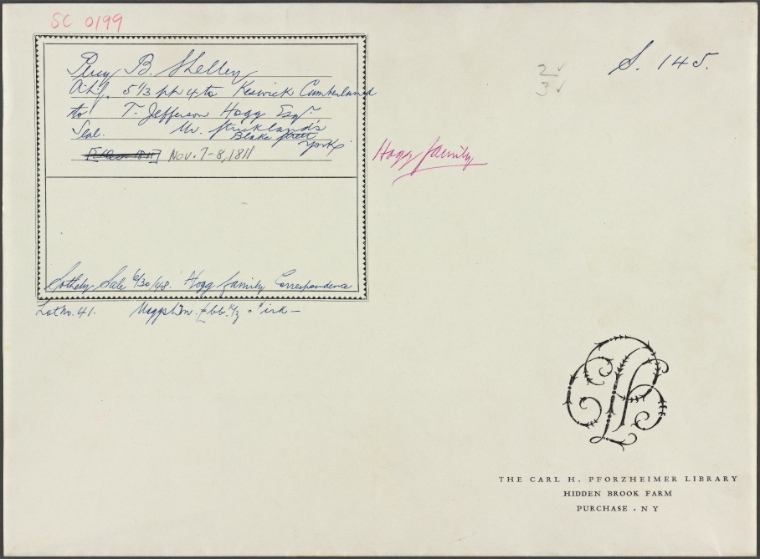 SC 0199
S. 145.
2 ✓
3 ✓
Percy B. Shelley
A.L.S. 5 1/3 pp 4to Keswick Cumberland
to T. Jefferson Hogg Esqr.
Seal. Mr. Strickland's
Blake Street
York
Nov. 7-8, 1811
Hogg family
Sotheby Sale 6/30/48. Hogg family Correspondence
Lot No. 41.
THE CARL H. PFORZHEIMER LIBRARY
HIDDEN BROOK FARM
PURCHASE . NY